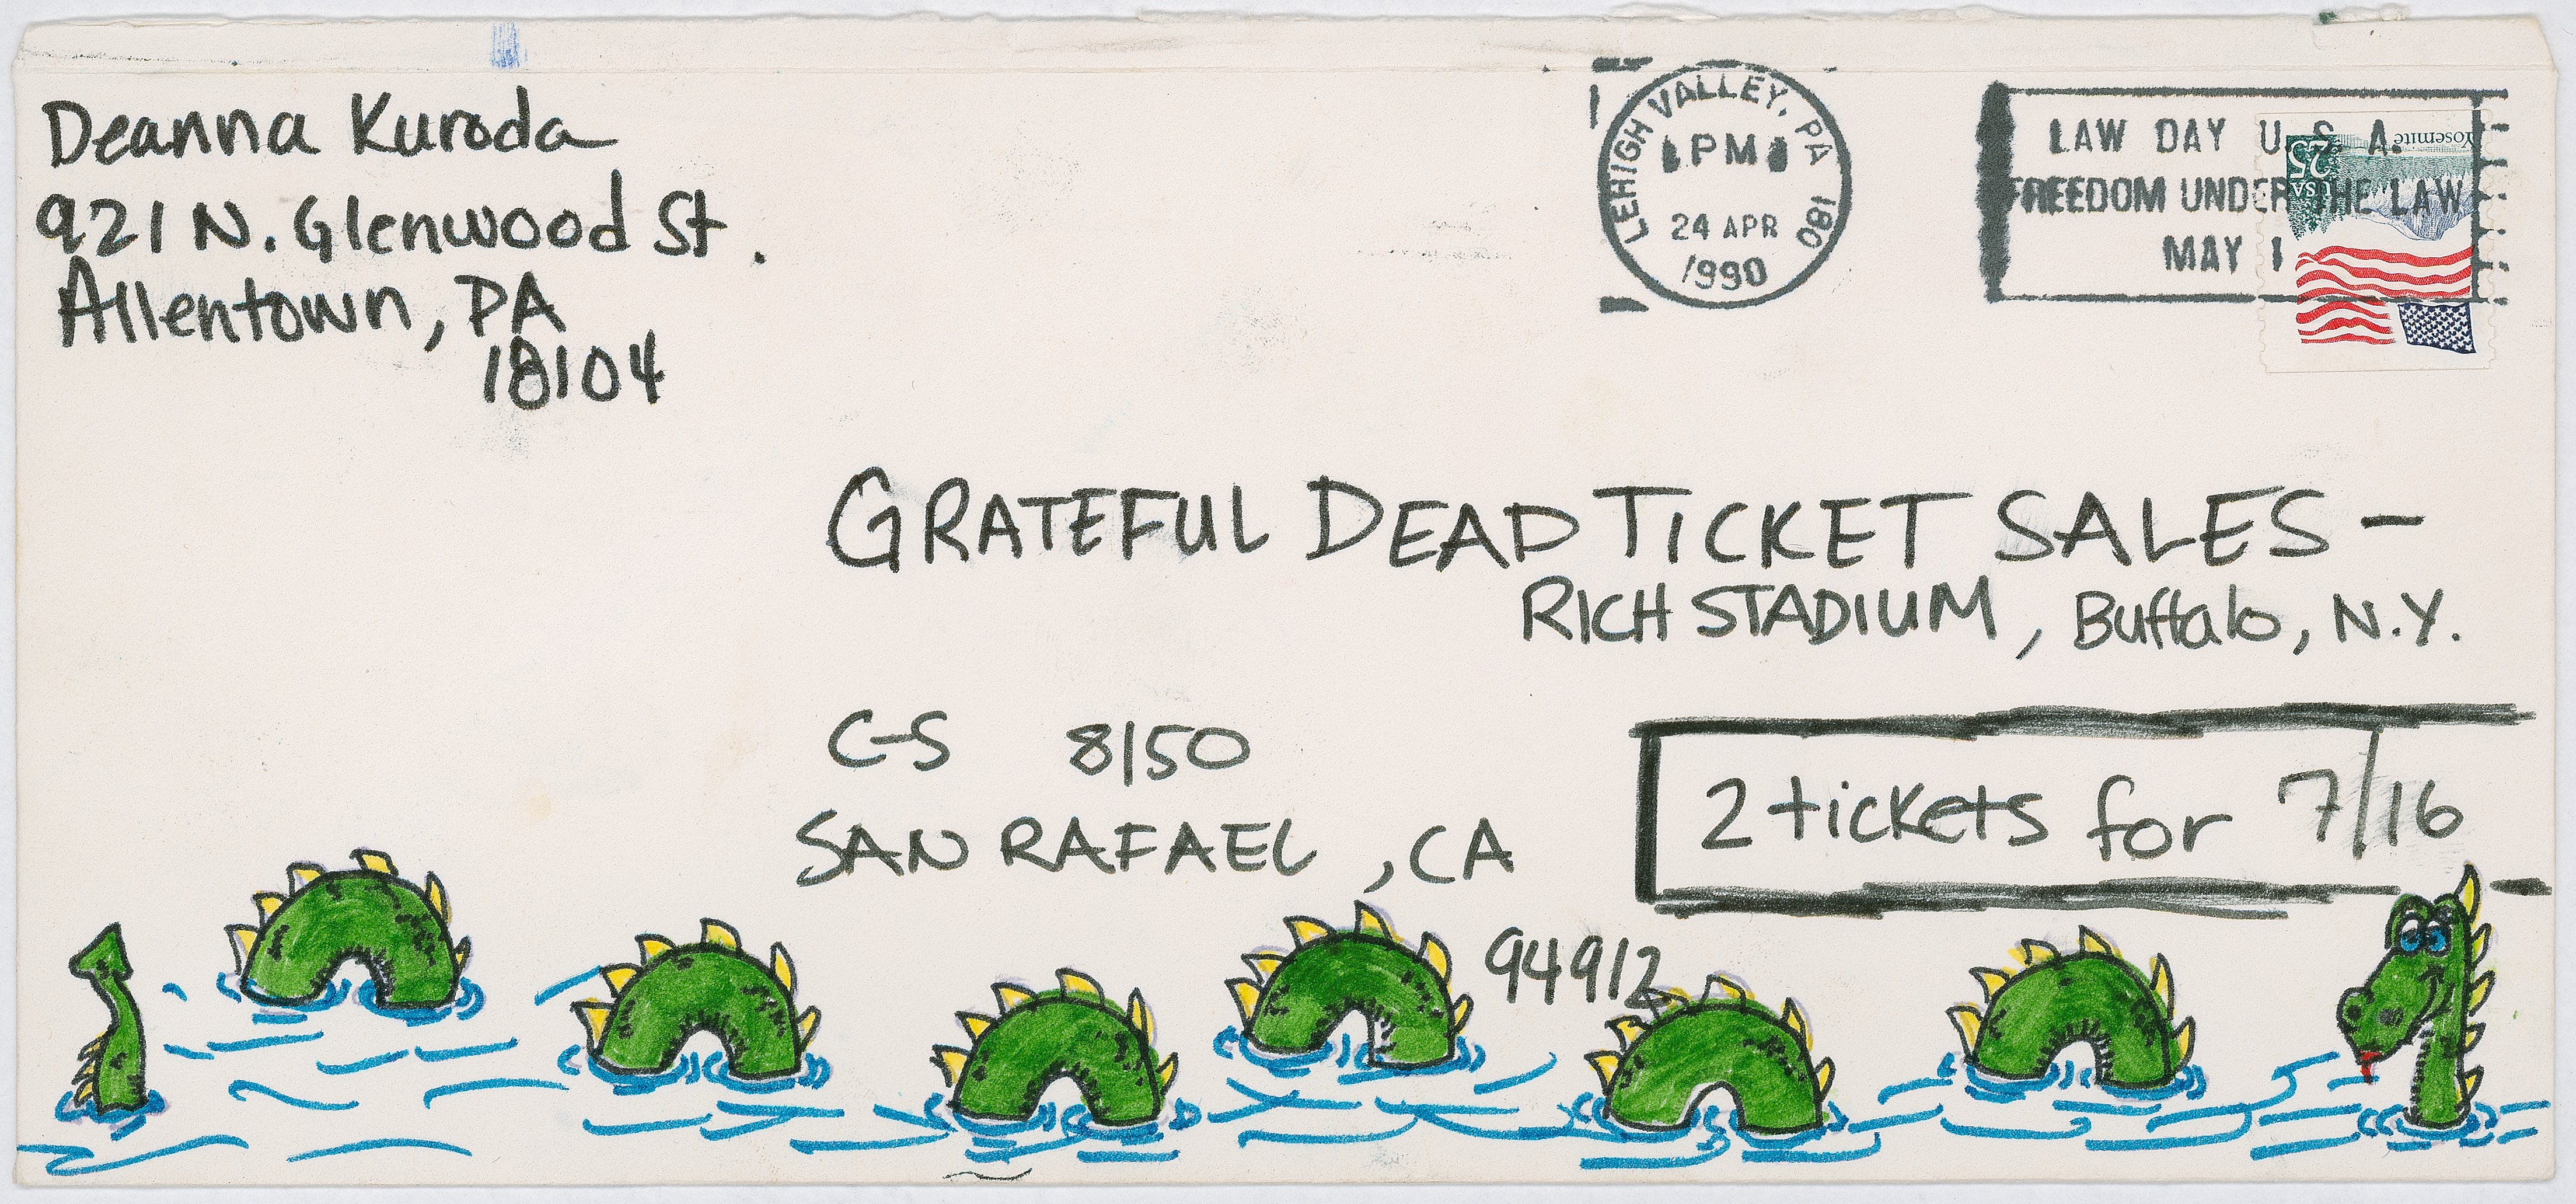 Deanna Kuroda
921 N. Glenwood St.
Allentown, PA
18104
LEHIGH VALLEY, PA 180
PM
24 APR
1990
LAW DAY U. S. A.
FREEDOM UNDER THE LAW
MAY 1
Yosemite
25
USA
GRATEFUL DEAD TICKET SALES —
RICH STADIUM, Buffalo, N.Y.
C-S 8150
SAN RAFAEL, CA
94912
2 tickets for 7/16